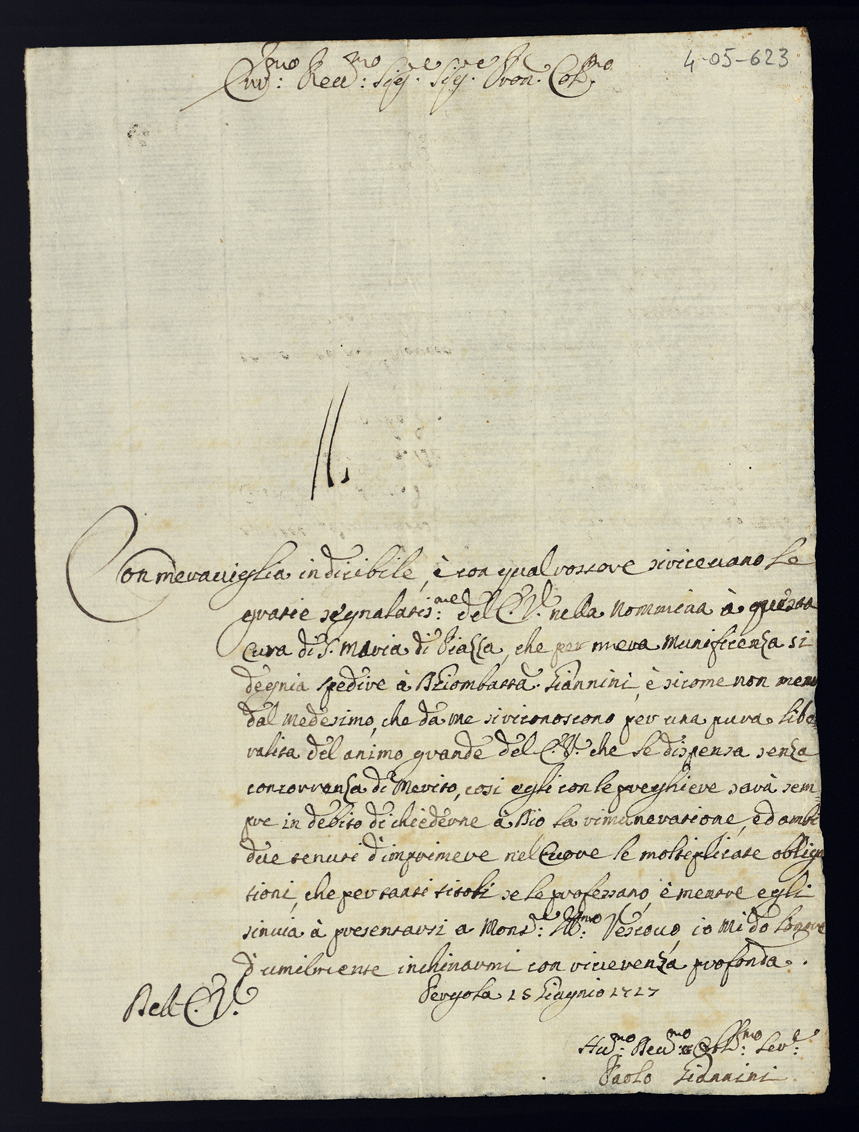 4-05-623
Emo: Reumo: Sigre Sigre Pron. Colmo.
Con meraviglia indicibile, è con qual rossore si ricevano le
gratie segnalatis:me del E.V. nella nommina à questa
Cura di S. Maria di Piazza, che per mera munificenza si
degnia spedire à Giombatta Giannini, è sicome non meno
dal medesimo, che da me si riconoscono per una pura libe-
ralita del animo grande del E.V. che le dispensa senza
concorrenza di Merito, cosi egli con le preghiere sarà sem-
pre in debito di chiederne à Dio la rimuneratione, ed ambi
due tenuti d'imprimere nel Cuore le moltiplicate obliga
tioni, che per tanti titoli se le professano, è mentre egli
sinuia à presentarsi a Monsr: Illmo: Vescouo, io mi do l'onore
d'umilmente inchinarmi con riverenza profonda.
Pergola 18 Giugnio 1717
Dell E.V.
Humo: Deumo: Obblmo: Serre:
Paolo Giannini